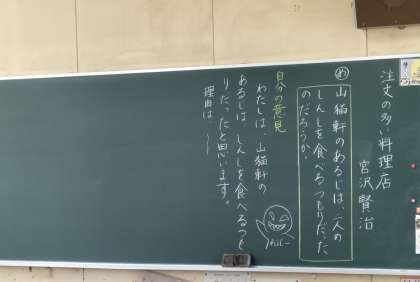 注文の多い料理店
宮沢賢治
め
山猫軒のあるじは、二人の
しんしを食べるつもりだった
のだろうか。
自分の意見
わたしは、山猫軒の
あるじは、しんしを食べるつも
りだったと思います。
理由は、〜〜